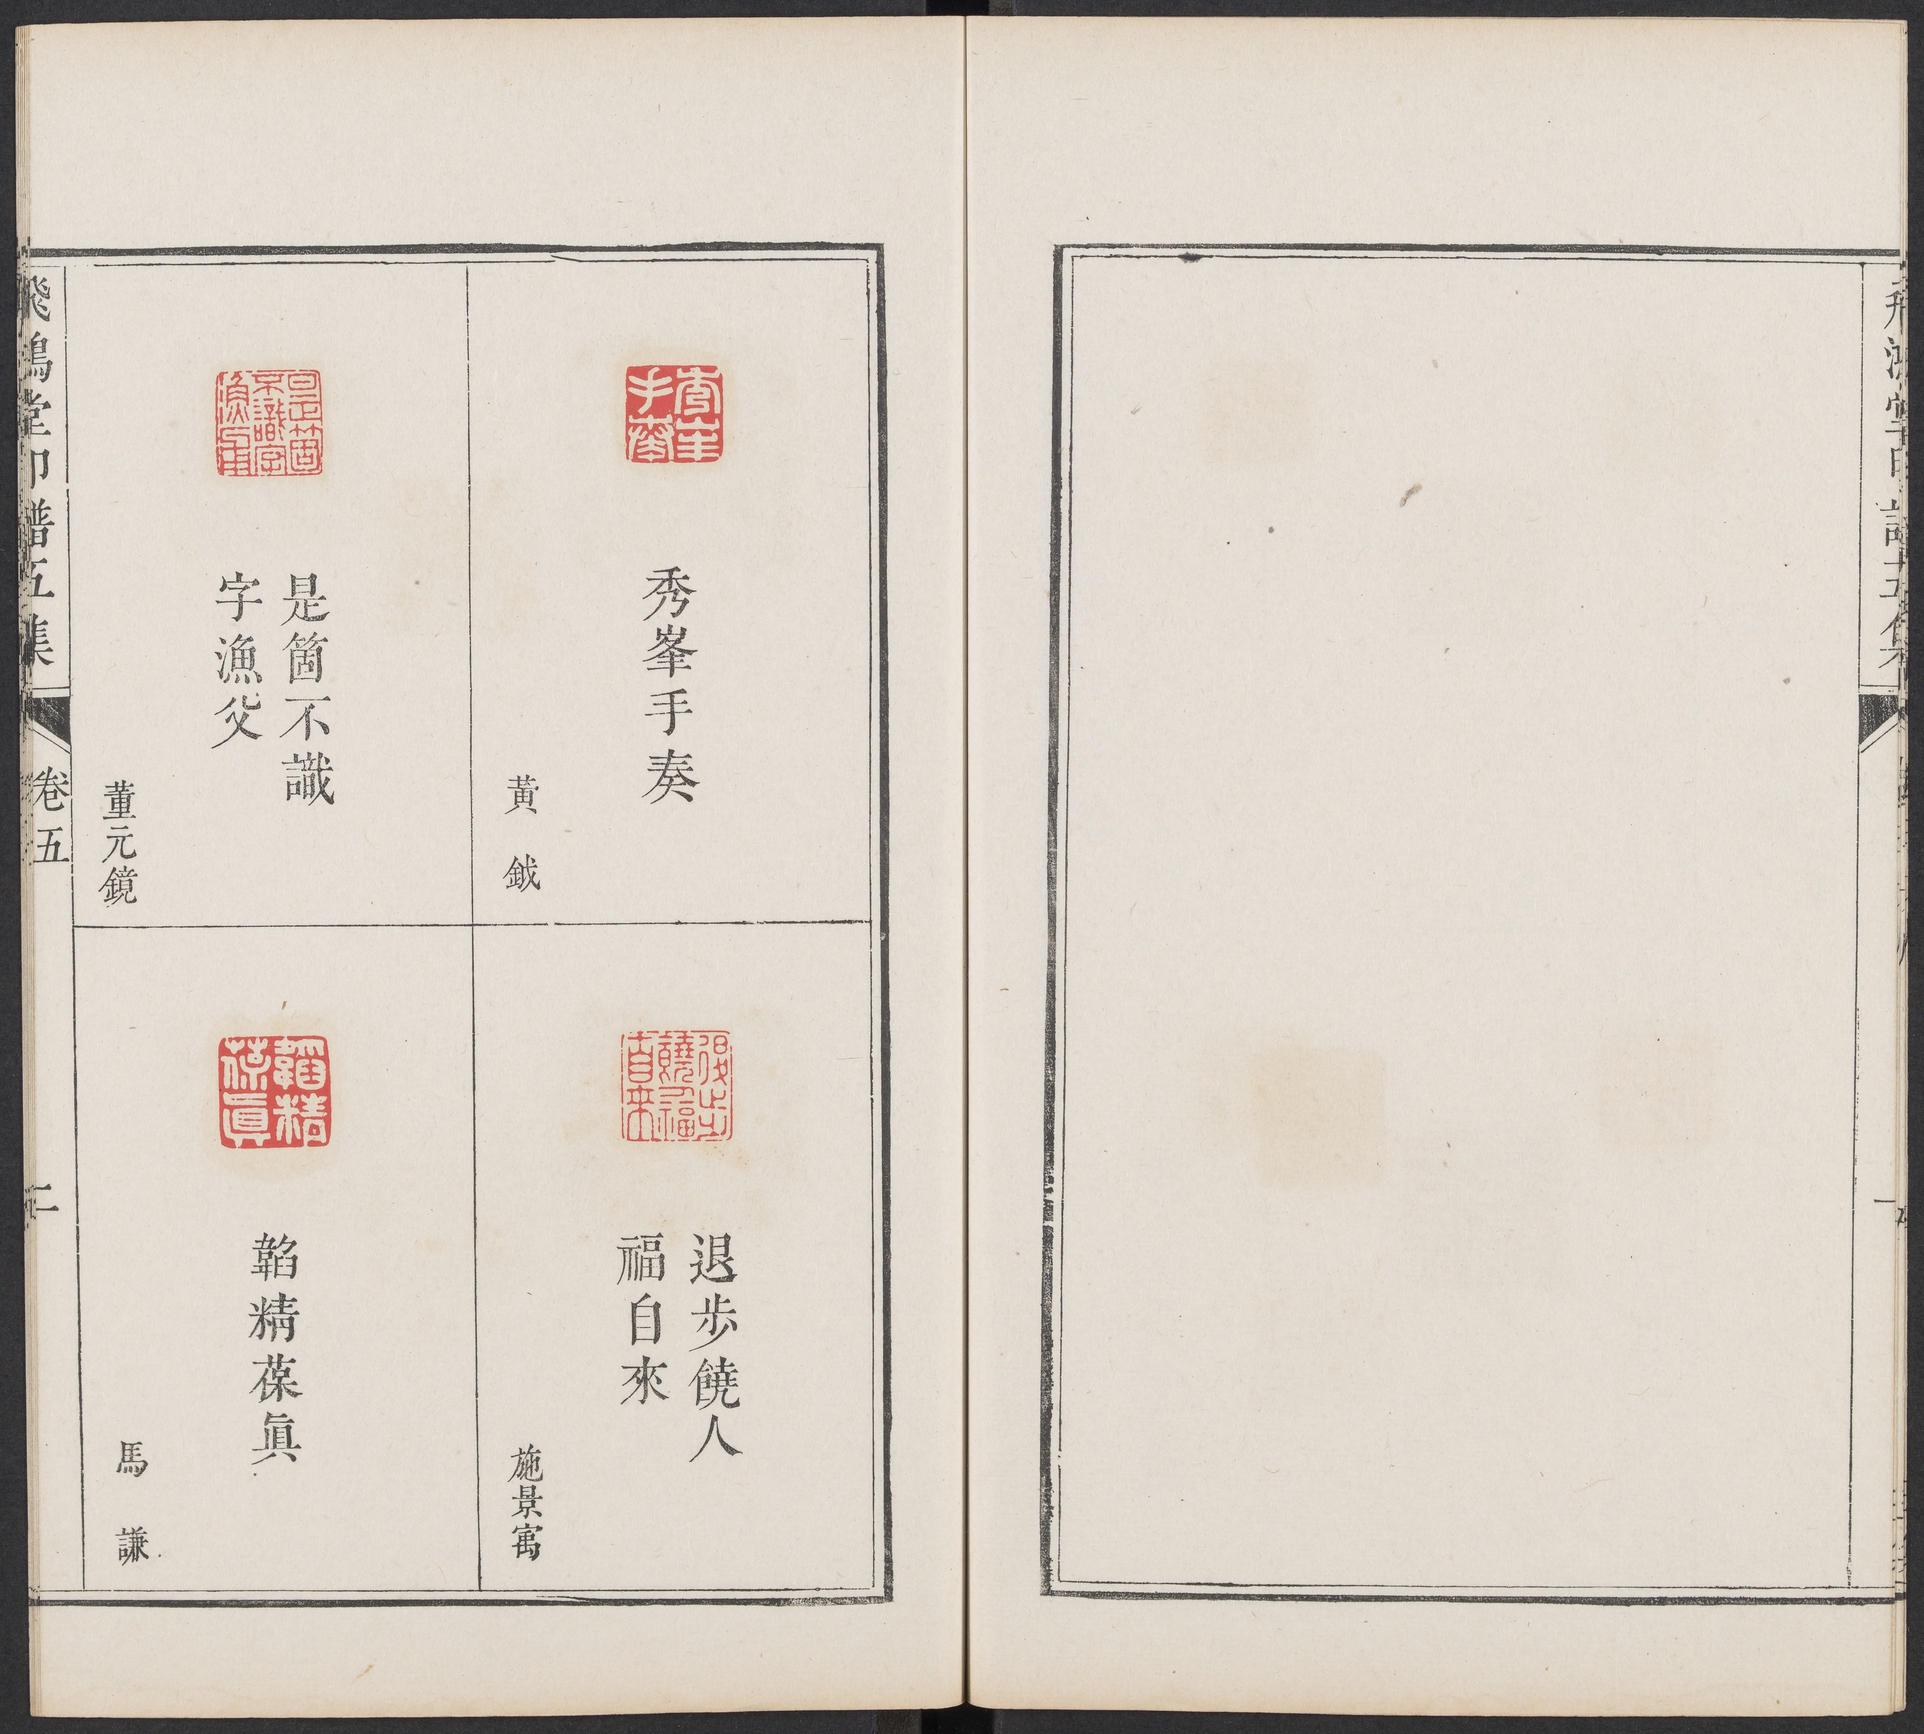 秀峯手奏
黃鉞
退步饒人
福自來
施景寓
是箇不識
字漁父
董元鏡
韜精葆眞
馬謙
飛鴻堂印譜五集
卷五
二